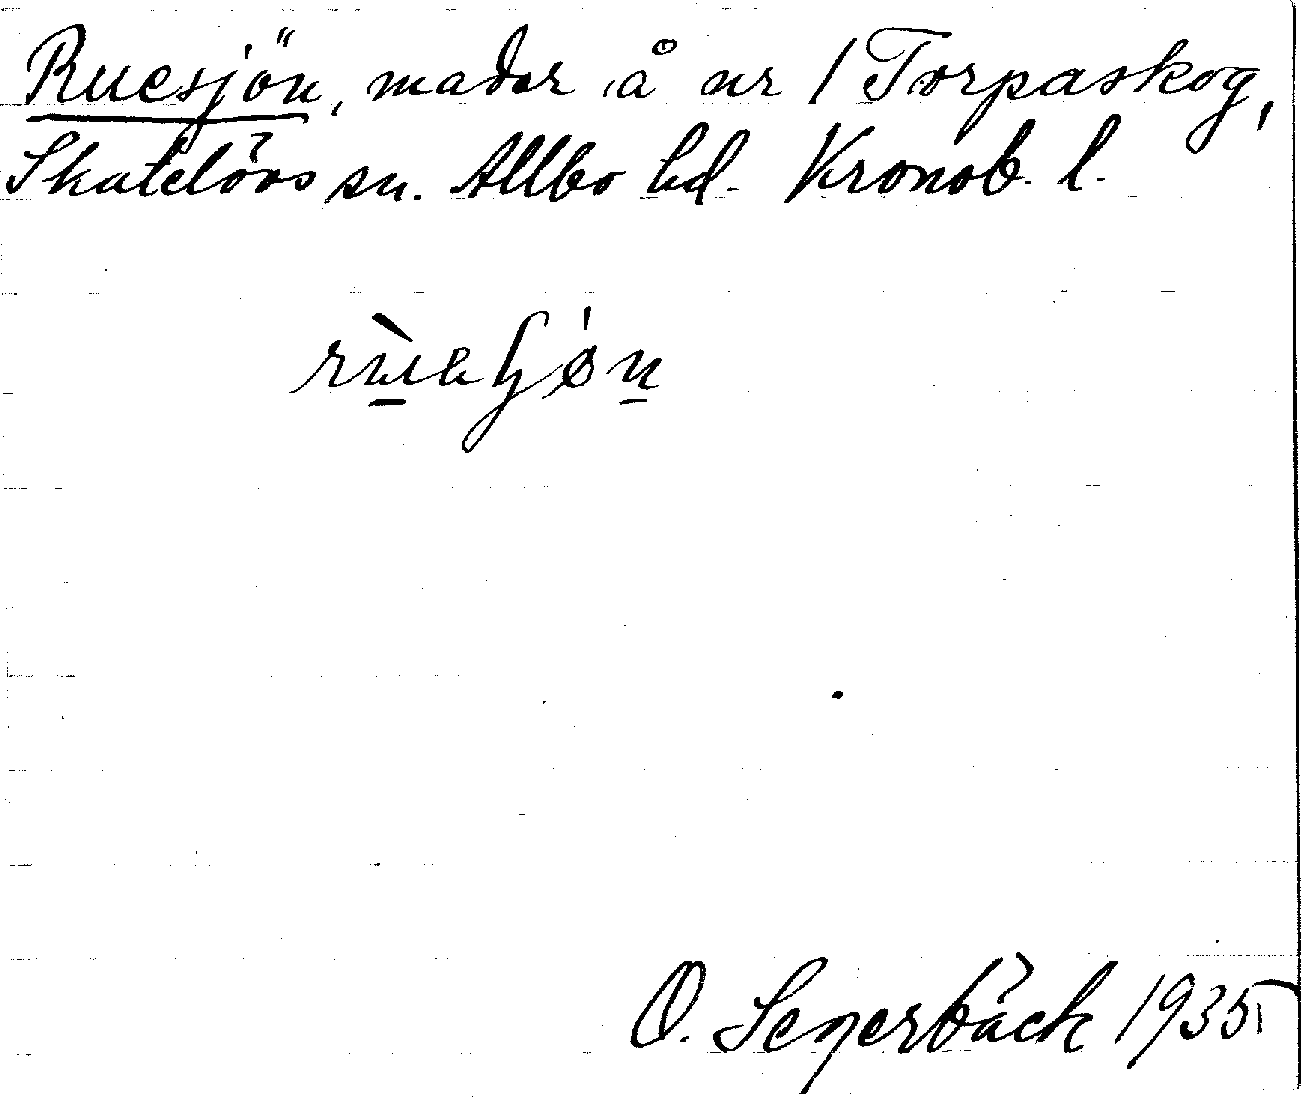 Ruesjön, mador å nr 1 Torpaskog,
Skatelövs sn. Allbo hd. Kronob. l.
O. Segerbäck 1935